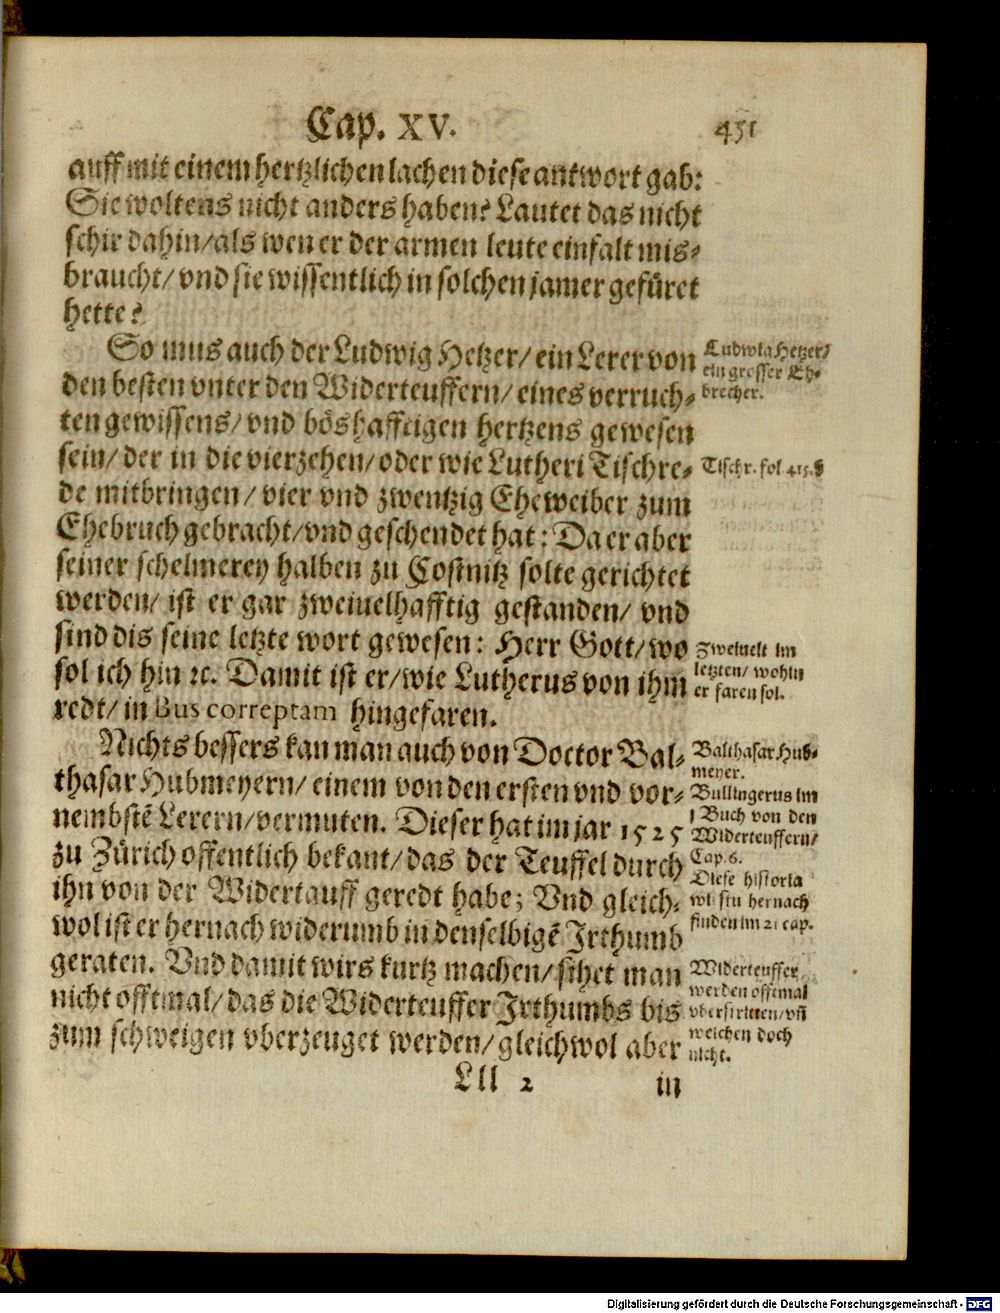 Cap. XV. 451
auff mit einem hertzlichen lachen diese antwort gab:
Sie woltens nicht anders haben? Lautet das nicht
schir dahin/als wen er der armen leute einfalt mis⸗
braucht/ vnd sie wissentlich in solchen jamer gefüret
hette?
So mus auch der Ludwig Hetzer/ ein Lerer von
den besten vnter den Widerteuffern/ eines verruch⸗
ten gewissens/ vnd böshafftigen hertzens gewesen
sein/ der in die vierzehen/ oder wie Lutheri Tischre⸗
de mitbringen/ vier vnd zwentzig Eheweiber zum
Ehebruch gebracht/vnd geschendet hat: Da er aber
seiner schelmerey halben zu Costnitz solte gerichtet
werden/ ist er gar zweiuelhafftig gestanden/ vnd
sind dis seine letzte wort gewesen: Herr Gott/ wo
sol ich hin ꝛc. Damit ist er/wie Lutherus von ihm
redt/ in Bus correptam hingefaren.
Nichts bessers kan man auch von Doctor Bal⸗
thasar Hubmeyern/ einem von den ersten vnd vor⸗
nembstē Lerern/vermuten. Dieser hat im jar 1525
zu Zürich offentlich bekant/das der Teuffel durch
ihn von der Widertauff geredt habe; Vnd gleich⸗
wol ist er hernach widerumb in denselbigē Irthumb
geraten. Vnd damit wirs kurtz machen/ sihet man
nicht offtmal/ das die Widerteuffer Irthumbs bis
zum schweigen vberzeuget werden/ gleichwol aber
Lll 2 in
Ludwig Hetzer/
ein grosser Eh⸗
brecher.
Tischr. fol 415.
Zweiuelt im
letzten/ wohin
er faren sol.
Balthasar Hub⸗
meyer.
Bullingerus im
1 Buch von den
Widerteuffern/
Cap. 6.
Diese historia
wirstu hernach
finden im 21 cap.
Widerteuffer
werden offtmal
vberstritten/ vñ
weichen doch
nicht.
Digitalisierung gefördert durch die Deutsche Forschungsgemeinschaft - DFG